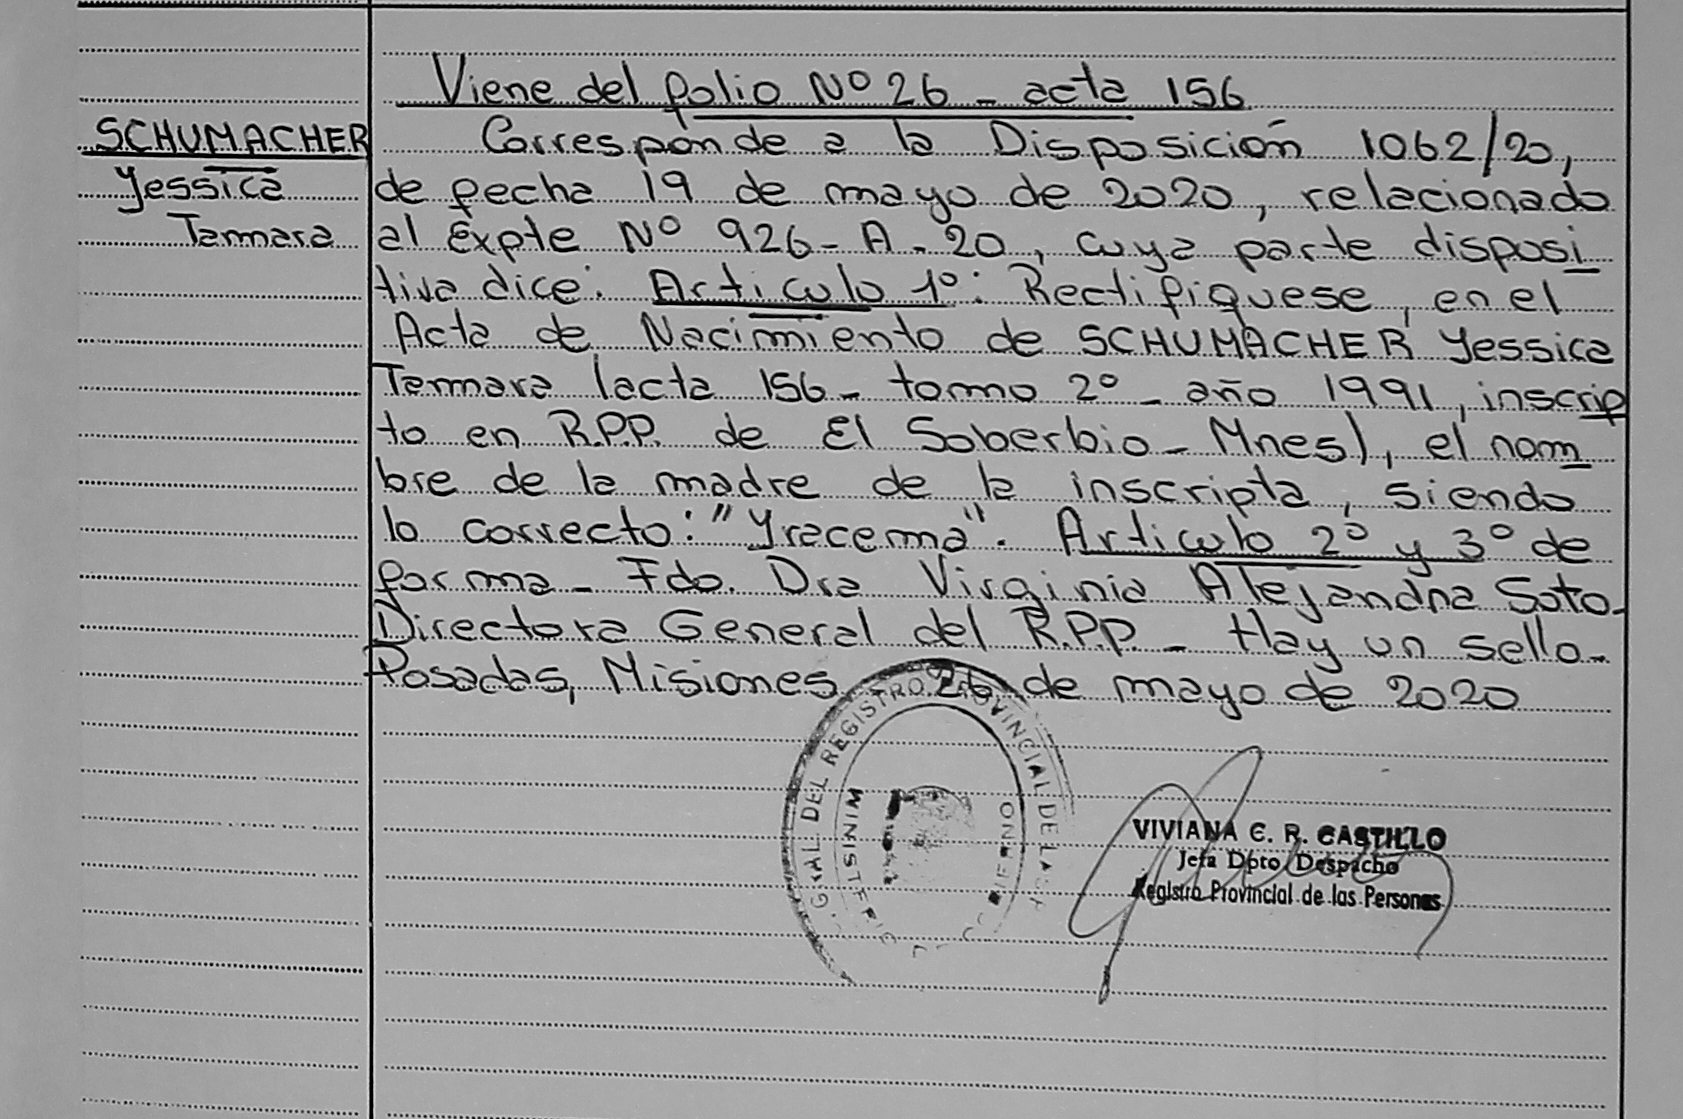 Viene del folio Nº 26 - acta 156
SCHUMACHER
Yessica
Tamara
Corresponde a la Disposición 1062/20,
de fecha 19 de mayo de 2020, relacionado
al Expte Nº 926-A-20, cuya parte disposi
tiva dice: Artículo 1º: Rectifiquese, en el
Acta de Nacimiento de SCHUMACHER Yessica
Tamara (acta 156 - tomo 2º - año 1991, inscrip
to en R.P.P. de El Soberbio - Mnes), el nom
bre de la madre de la inscripta, siendo
lo correcto: "Yracema". Artículo 2º y 3º de
forma - Fdo. Dra Virginia Alejandra Soto -
Directora General del R.P.P. - Hay un sello -
Posadas, Misiones 26 de mayo de 2020
GRAL. DEL REGISTRO PROVINCIAL DE LAS
VIVIANA C. R. CASTILLO
Jefa Dpto Despacho
Registro Provincial de las Personas